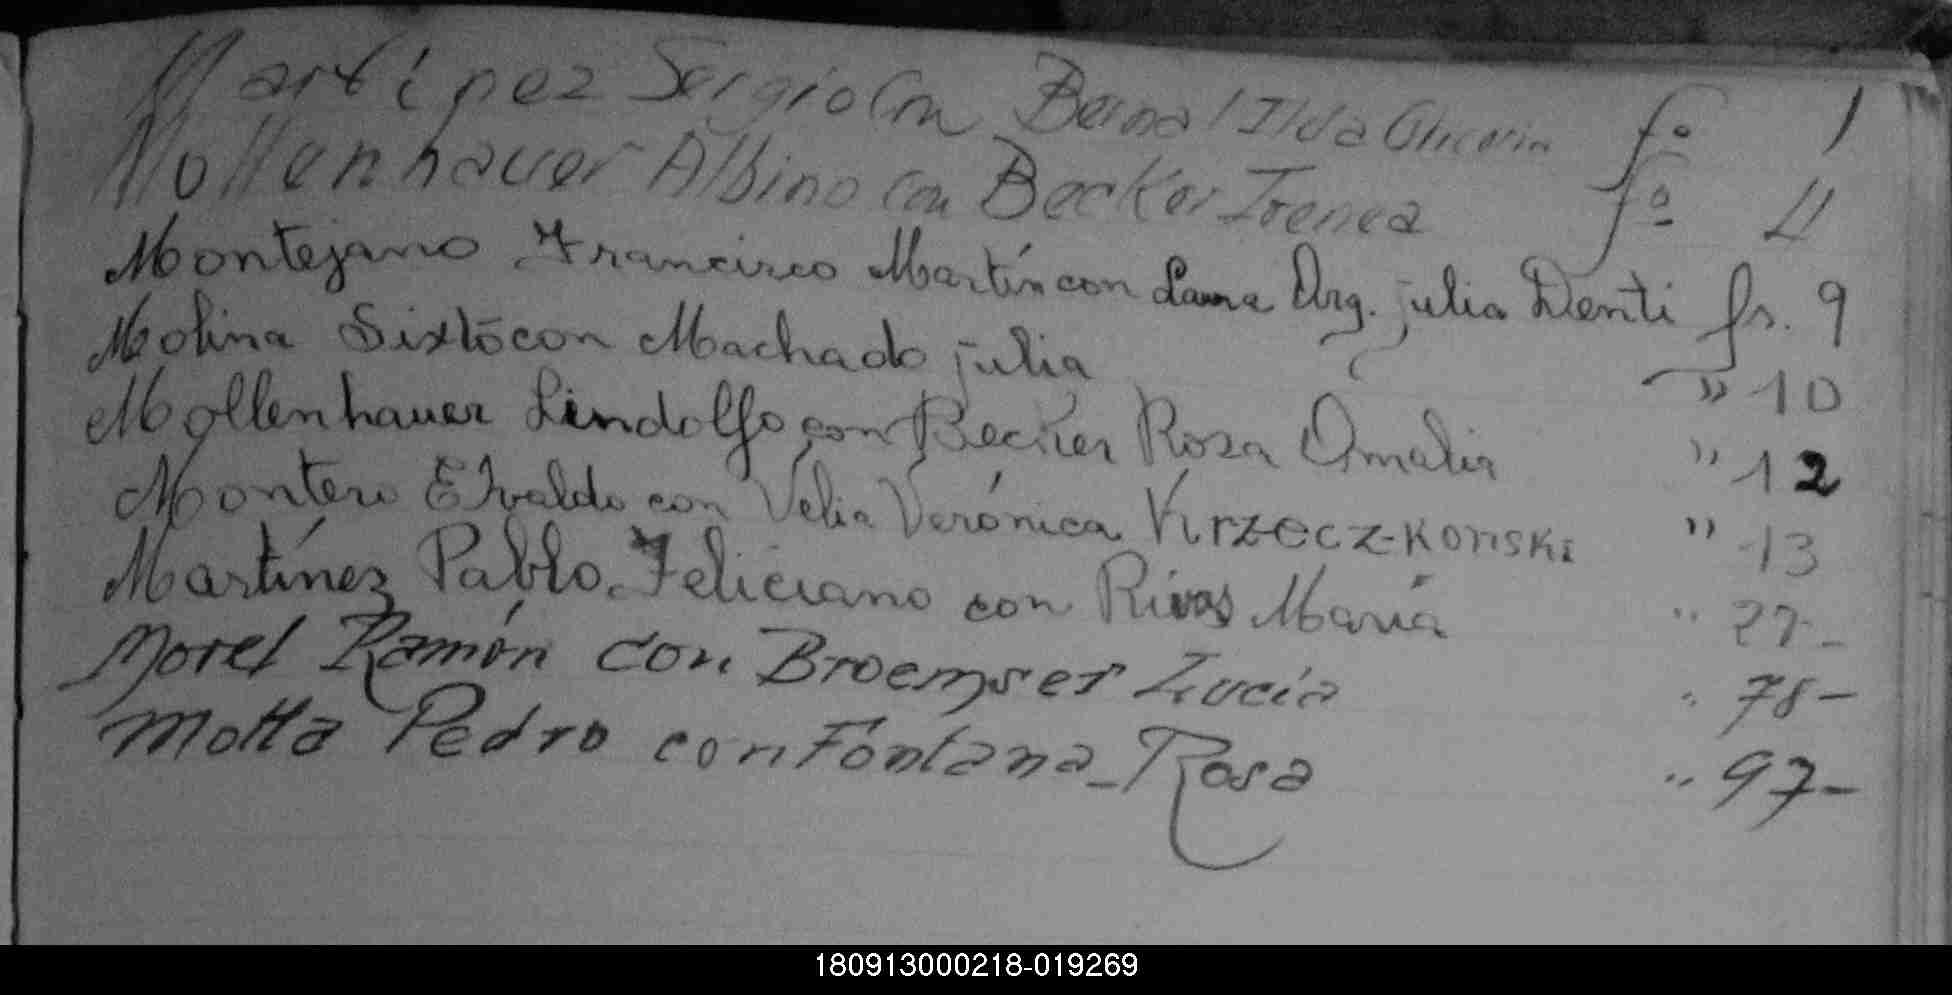 Martinez Sergio Con Bernal Ilda Gliceria fº 1
Mollenhauer Albino con Becker Irenea fº 4
Montejano Francisco Martín con Laura Arg. julia Denti fs. 9
Molina Sixto con Machado julia " 10
Mollenhauer Lindolfo con Becker Rosa Amalia " 12
Montero Etvaldo con Velia Verónica Krzecz-Konski " 13
Martínez Pablo Feliciano con Rivas María " 27-
Morel Ramón con Broemser Lucía " 78-
Motta Pedro con Fontana Rosa " 97-
180913000218-019269